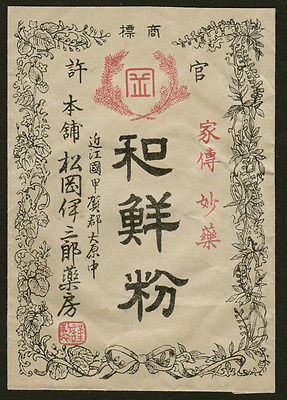 商標
官許
岡
家傳妙藥
和鮮粉
近江國甲賀郡大原中
本舗 松岡伊三郎藥房